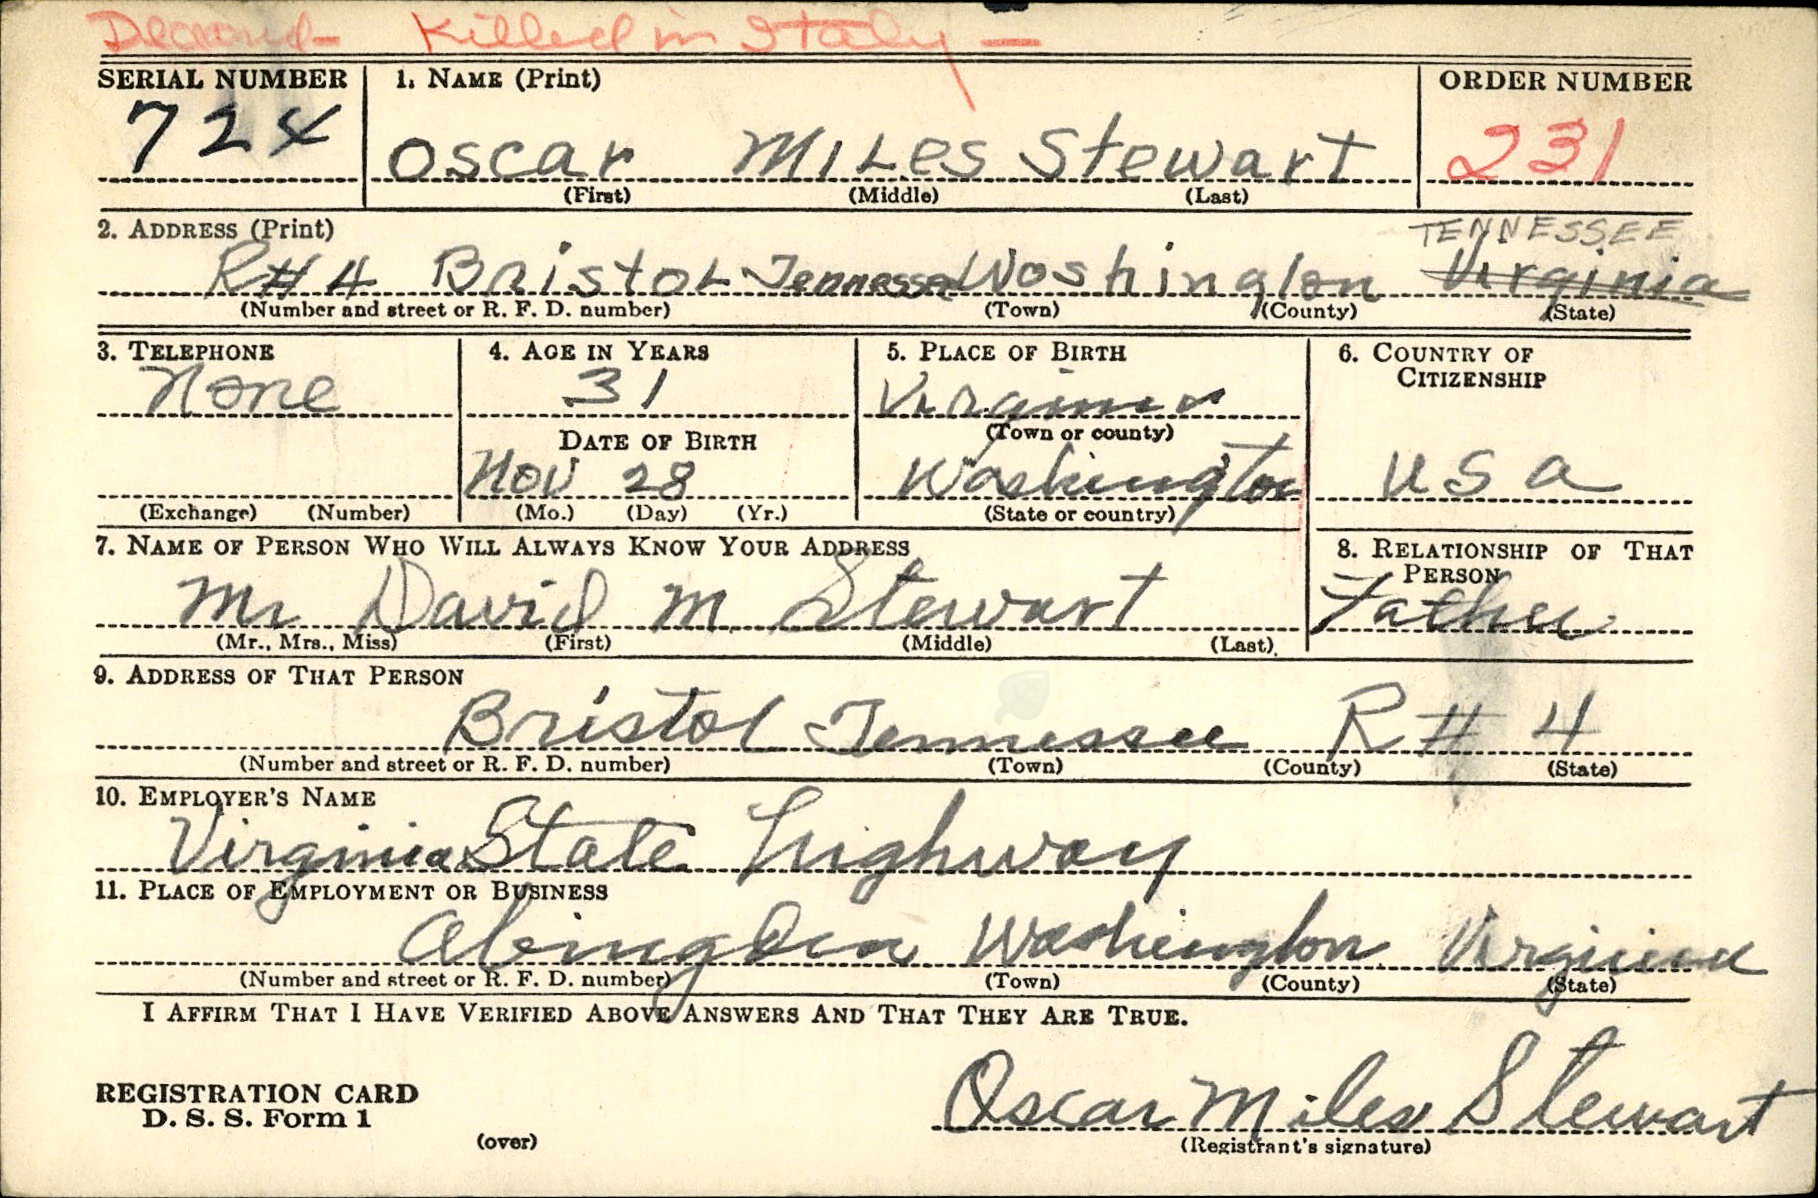 Killed in Italy -
SERIAL NUMBER 1. NAME (Print) ORDER NUMBER
724 Oscar Miles Stewart 231
(First) (Middle) (Last)
2. ADDRESS (Print) TENNESSEE
R#4 Bristol Tennessee Woshington Virginia
(Number and street or R. F. D. number) (Town) (County) (State)
3. TELEPHONE 4. AGE IN YEARS 5. PLACE OF BIRTH 6. COUNTRY OF
CITIZENSHIP
None 31 Virginia
DATE OF BIRTH (Town or county)
Nov 28 Washington USA
(Exchange) (Number) (Mo.) (Day) (Yr.) (State or country)
7. NAME OF PERSON WHO WILL ALWAYS KNOW YOUR ADDRESS 8. RELATIONSHIP OF THAT
PERSON
Mr David M. Stewart Father
(Mr., Mrs., Miss) (First) (Middle) (Last)
9. ADDRESS OF THAT PERSON
Bristol Tennessee R#4
(Number and street or R. F. D. number) (Town) (County) (State)
10. EMPLOYER'S NAME
Virginia State Highway
11. PLACE OF EMPLOYMENT OR BUSINESS
Abingdon Washington Virginia
(Number and street or R. F. D. number) (Town) (County) (State)
I AFFIRM THAT I HAVE VERIFIED ABOVE ANSWERS AND THAT THEY ARE TRUE.
REGISTRATION CARD
D. S. S. Form 1 Oscar Miles Stewart
(over) (Registrant's signature)